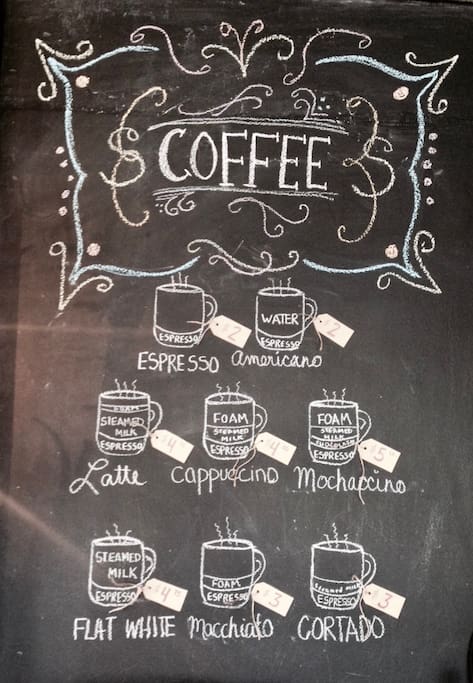 COFFEE
ESPRESSO
$2
WATER
ESPRESSO
$2
ESPRESSO
Americano
FOAM
STEAMED
MILK
ESPRESSO
$4
FOAM
STEAMED
MILK
ESPRESSO
$4
FOAM
STEAMED
MILK
CHOCOLATE
ESPRESSO
$5
Latte
Cappuccino
Mochaccino
STEAMED
MILK
ESPRESSO
$4
FOAM
ESPRESSO
$3
Steamed milk
ESPRESSO
$3
FLAT WHITE
Macchiato
CORTADO